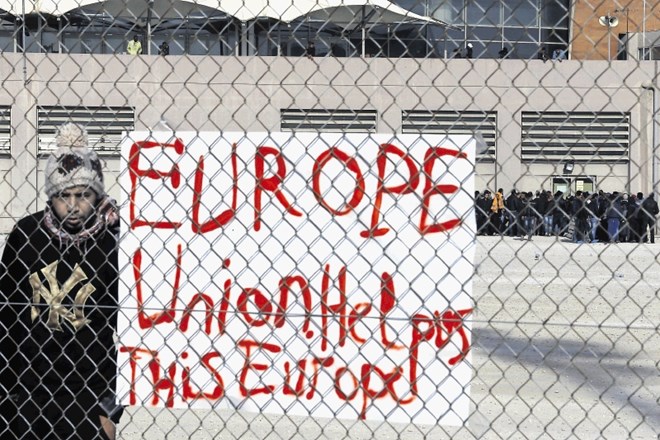 EUROPE
Union. Help us
This Europe!
NY